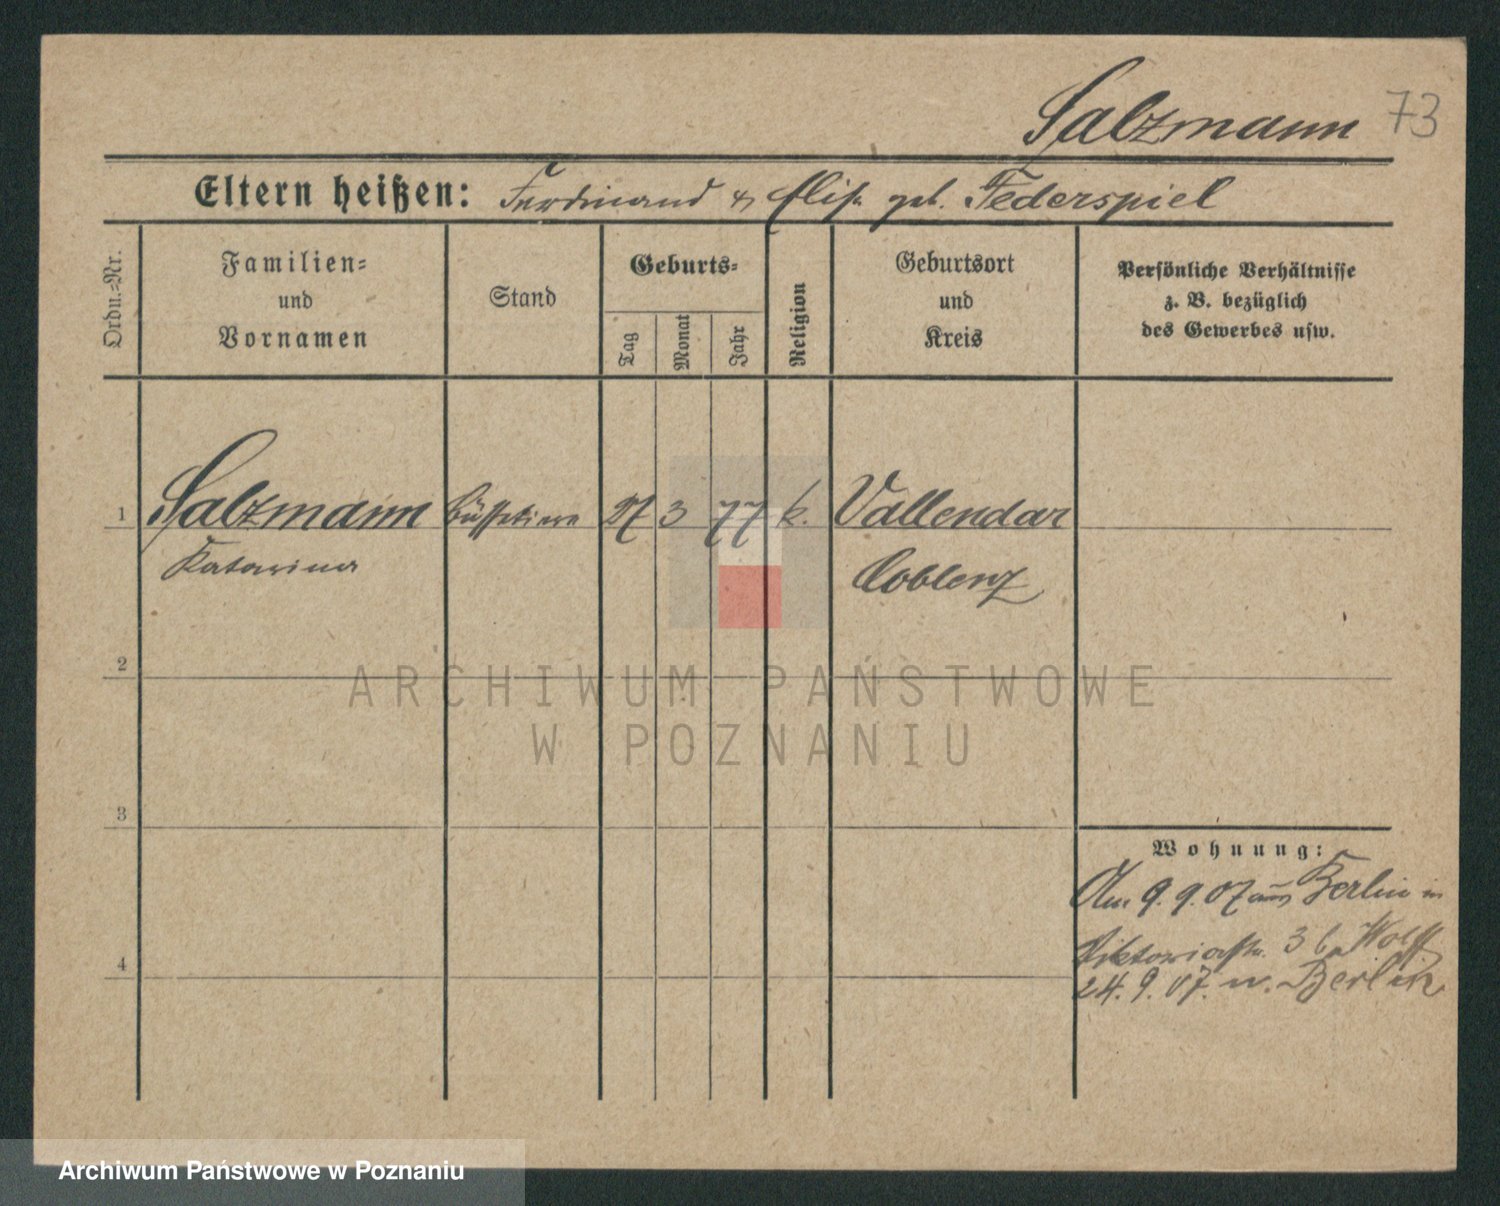 Salzmann 73
Eltern heißen: Ferdinand & Elis. geb. Federspiel
Ordn.-Nr.
Familien-
und
Vornamen
Stand
Geburts-
Tag
Monat
Jahr
Religion
Geburtsort
und
Kreis
Persönliche Verhältnisse
z. B. bezüglich
des Gewerbes usw.
1 Salzmann 27 3 77 k. Vallendar
Katarina Coblenz
2
ARCHIWUM PAŃSTWOWE
W POZNANIU
3
Wohnung:
Am 9.9.07 aus Berlin in
Viktoriastr. 3 b. Wolff
4
24.9.07. n. Berlin
Archiwum Państwowe w Poznaniu